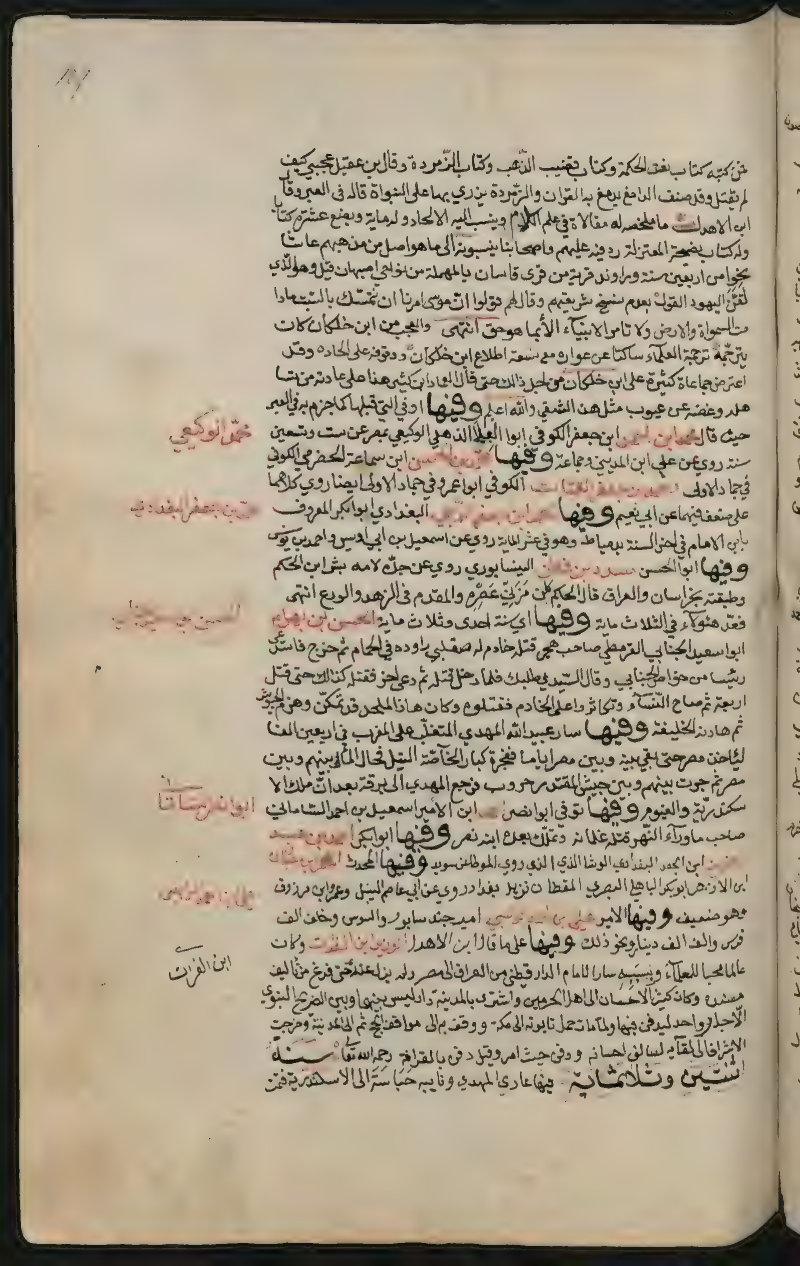 من كتبه كتاب نعت الحكمة وكتاب قضيب الذهب وكتاب الزمردة وقال بن عقيل عجبي كيف
لم يقتل وقد صنف الدامغ يدمغ به القران والزمردة يزري بها على النبواة قاله في العبر وقال
ابن الاهدل ما ملخصه له مقالاة في علم الكلام وينسب اليه الالحاد وله ماية وبضع عشرة كتابا
وله كتاب فضيحة المعتزلة رد فيه عليهم واصحابنا ينسبونه الى ما هو اضل من مذهبهم عاش
نحوا من اربعين سنة وراوند قرية من قرى قاسان بالمهملة من نواحي اصبهان قيل وهو الذي
لقن اليهود القول بعدم نسخ شريعتهم وقال لهم قولوا ان موسى امرنا ان نتمسك بالسبت مادا
مت السمواة والارض ولا تامر الانبياء الا بما هو حق انتهى والعجب من ابن خلكان كانه
يترجمه ترجمة العلماء ساكتا عن عواره مع سعة اطلاع ابن خلكان ووقوفه على الحاده وقد
اعترض جماعة كثيرة على ابن خلكان من اجل ذلك حتى قال العماد ابن كثير هذا على عادته من تسا
هله وغضه عن عيوب مثل هذا الشقي والله اعلم وفيها او في التي قبلها كما جزم به في العبر
حيث قال محمد ابن احمد ابن جعفر الكوفي ابوا العلا الذهلي الوكيعي بمصر عن ست وتسعين
سنة روى عن علي ابن المديني وجماعة وفيها ابن سماعة الحضرمي الكوفي
في جماد الاولى محمد بن جعفر القتات الكوفي ابوا عمرو في جماد الاولى ايضا روى كلاهما
على ضعف فيهما عن ابي نعيم وفيها محمد ابن جعفر البغدادي ابوا بكر المعروف
بابن الامام في اخر السنة بدمياط وهو في عشر الماية روى عن اسمعيل بن ابي اويس واحمد بن يونس
وفيها ابوا الحسن مسدد بن قطن النيسابوري روى عن جده لامه بشر ابن الحكم
وطبقته بخراسان والعراق قال الحاكم كان مزكي عصره والمقدم في الزهد والورع انتهى
فعد هئولاء في الثلاث ماية وفيها اي سنة احدى وثلاث ماية الحسن بن بهرام
ابوا سعيد الجنابي القرمطي صاحب هجر قتله خادم له صقلبي راوده في الحمام ثم خرج فاستدعى
رئيسا من خواص الجنابي وقال السيد يطلبك فلما دخل قتله ثم دعى اخر فقتله كذالك حتى قتل
اربعة ثم صاح النساء وتكاثروا على الخادم فقتلوه وكان هاذا الملحد قد تمكن وهزم الجيوش
ثم هادنه الخليفة وفيها سار عبيد الله المهدي المتغلب على المغرب في اربعين الفا
لياخذ مصر حتى بقي بينه وبين مصر اياما ففجر كبار الخاصة النيل فحال الماء بينهم وبين
مصر ثم جرت بينهم وبين جيش المقتدر حروب فرجع المهدي الى برقة بعد ان ملك الا
سكندرية والفيوم وفيها توفي ابوا نصر احمد ابن الامير اسمعيل بن احمد الساماني
صاحب ماوراء النهر قتله غلمانه وتملك بعده ابنه نصر وفيها ابوا بكر احمد بن محمد
ابن الجعد البغدادي الوشا الذي روى الموطا عن سويد وفيها المحدث
ابن الازهر ابوا بكر الباهلي البصري القطان نزيل بغداد روى عن ابي عاصم النبيل وعمرو ابن مرزوق
وهو ضعيف وفيها الامير علي بن احمد الراسبي امير جند سابور والسوس وخلف الف
فرس والف الف دينار ونحو ذلك وفيها على ما قال ابن الاهدل الوزير ابن الفرات وكان
عالما محبا للعلماء وبسببه سار الامام الدار قطني من العراق الى مصر ولم يزل عنده حتى فرغ من تاليف
مسنده وكان كثير الاحسان الى اهل الحرمين واشترى بالمدينة دار ليس بينها وبين الضريح النبوي
الا جدار واحد ليدفن فيها ولما مات حمل تابوته الى مكة ووقف به الى مواقف الحج ثم الى المدينة وخرجت
الاشراف الى لقايه لسالف احسانه ودفن حيث امر وقيل دفن بالقرافة رحمه الله تعا سنة
اثنتين وثلاثماية فيها عاد المهدي ونايبه حباسة الى الاسكندرية فتمت
محمد الوكيعي
محمد بن جعفر البغدادي
ابوا نصر
علي ابن احمد الراسبي
ابن الفرات